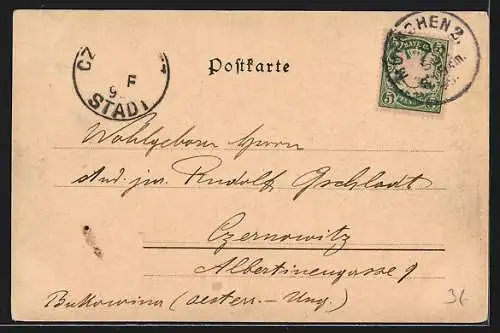 CZ
F
9
STADT
Postkarte
MÜNCHEN 2.
BAYERN
5 5
PFENNIG
Wohlgeboren Herrn
stud. jur. Rudolf Gschladt
Czernowitz
Albertinengasse 9
Bukowina (Oesterr.- Ung.)
36